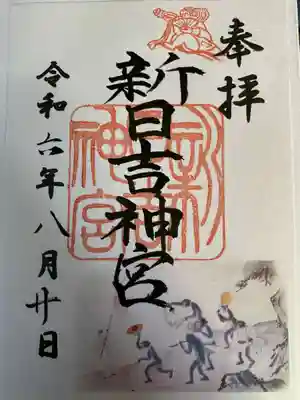 奉拝
新日吉神宮
令和六年八月廿日